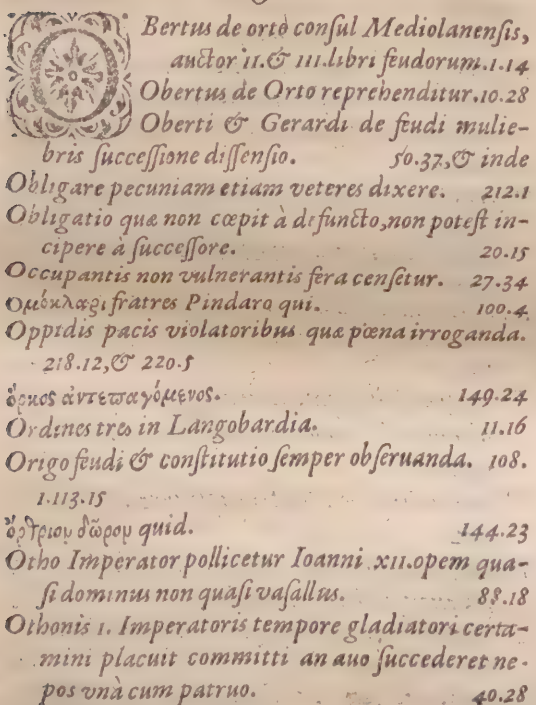 OBertus de orto consul Mediolanensis,
auctor II.& III.libri feudorum.1.14
Obertus de Orto reprehenditur.10.28
Oberti & Gerardi de feudi mulie-
bris successione dissensio. 50.37,& inde
Obligare pecuniam etiam veteres dixere. 212.1
Obligatio quæ non cœpit à defuncto,non potest in-
cipere à successore. 20.15
Occupantis non vulnerantis fera censetur. 27.34
Ομόκλαροι fratres Pindaro qui. 100.4
Oppidis pacis violatoribus quæ pœna irroganda.
218.12,& 220.5
ὅρκος ἀντεπαγόμενος. 149.24
Ordines tres in Langobardia. 11.16
Origo feudi & constitutio semper obseruanda. 108.
1.113.15
ὄρθριον δῶρον quid. 144.23
Otho Imperator pollicetur Ioanni XII.opem qua-
si dominus non quasi vasallus. 88.18
Othonis I. Imperatoris tempore gladiatori certa-
mini placuit committi an auo succederet ne-
pos vnà cum patruo. 40.28